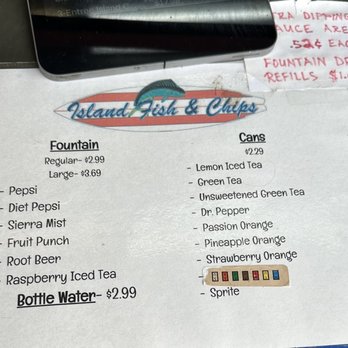 TRA DIPPING
SAUCE ARE
.52¢ EAC
FOUNTAIN DR
REFILLS $1.
Island Fish & Chips
Fountain
Regular- $2.99
Large- $3.69
- Pepsi
- Diet Pepsi
- Sierra Mist
- Fruit Punch
- Root Beer
- Raspberry Iced Tea
Bottle Water- $2.99
Cans
$2.29
- Lemon Iced Tea
- Green Tea
- Unsweetened Green Tea
- Dr. Pepper
- Passion Orange
- Pineapple Orange
- Strawberry Orange
-
- Sprite